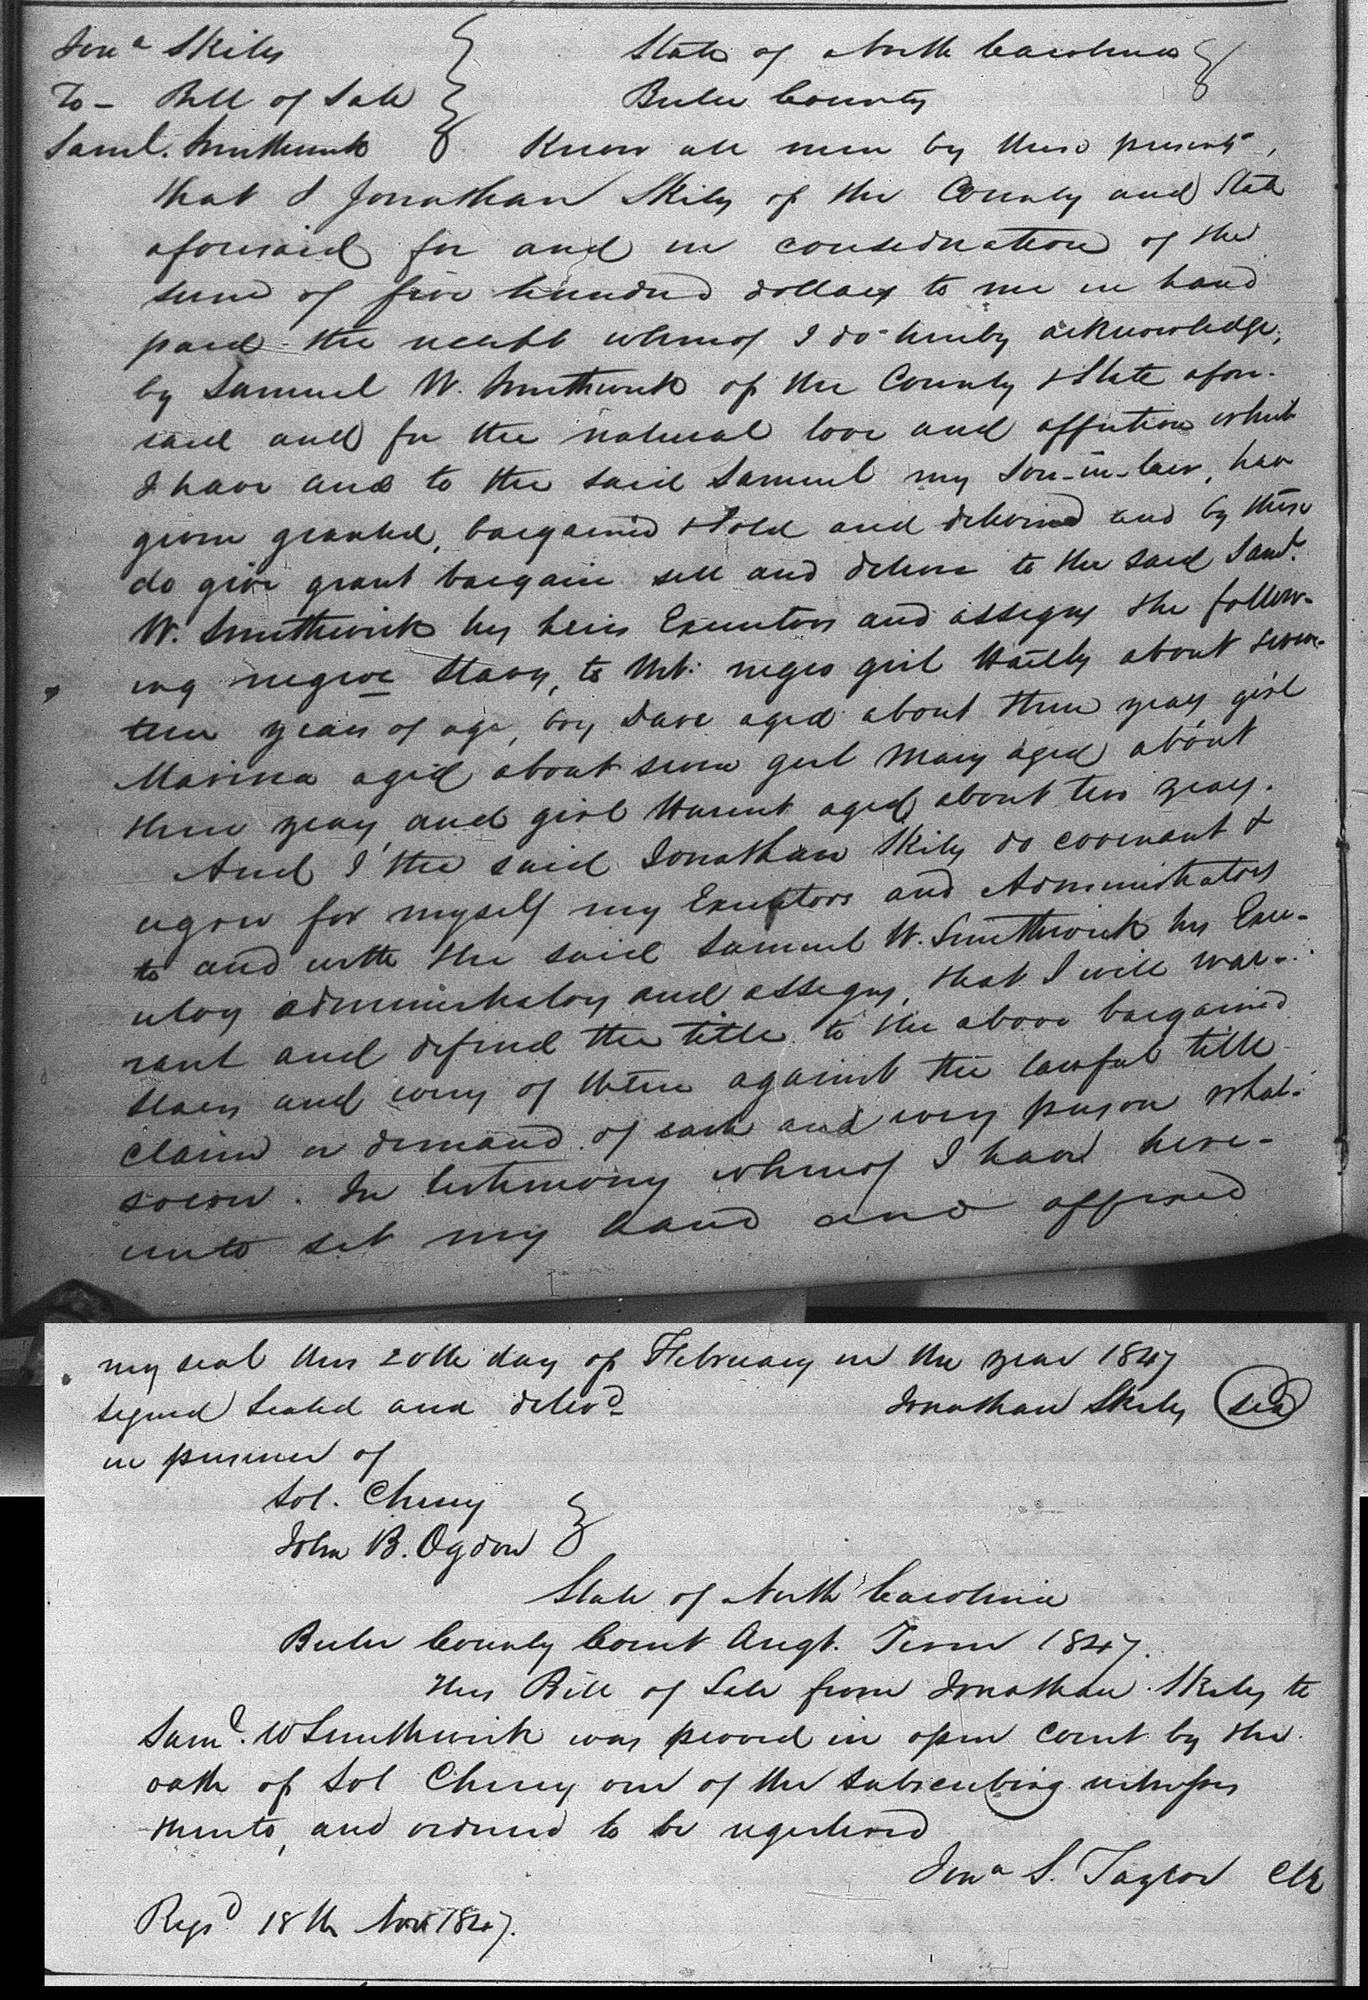 Jona Skiles State of North Carolina
To - Bill of Sale Bertie County
Saml. Smithwick Know all men by these presents,
that I Jonathan Skiles of the County and State
aforesaid for and in consideration of the
sum of five hundred dollars to me in hand
paid the receipt whereof I do hereby acknowledge,
by Samuel W. Smithwick of the County & State afore-
said and for the natural love and affection which
I have and to the said Samuel my son-in-law, have
given granted, bargained & sold and delivered and by these
do give grant bargain sell and deliver to the said Saml.
W. Smithwick his heirs Executors and assigns the follow-
ing negroe slaves, to wit: negro girl about seven-
teen years of age, boy Dave aged about three years girl
Marina aged about seven girl Mary aged about
three years and girl Harriet aged about two years.
And I the said Jonathan Skiles do covenant &
agree for myself my Executors and Administrators
to and with the said Samuel W. Smithwick his Exec-
utors administrators and assigns, that I will war-
rant and defend the title to the above bargained
slaves and every of them against the lawful title
claim or demand of each and every person what-
soever. In testimony whereof I have here-
unto set my hand and affixed
my seal this 20th day of February in the year 1847
signed sealed and delivd Jonathan Skiles seal
in presence of
Sol. Cherry
John B. Ogdon
State of North Carolina
Bertie County Court Augt. Term 1847.
This Bill of Sale from Jonathan Skiles to
Saml. W Smithwick was proved in open court by the
oath of Sol Cherry one of the subscribing witnesses
thereto, and ordered to be registered
Jona S. Taylor Clk
Regd 18th Nov 1847.